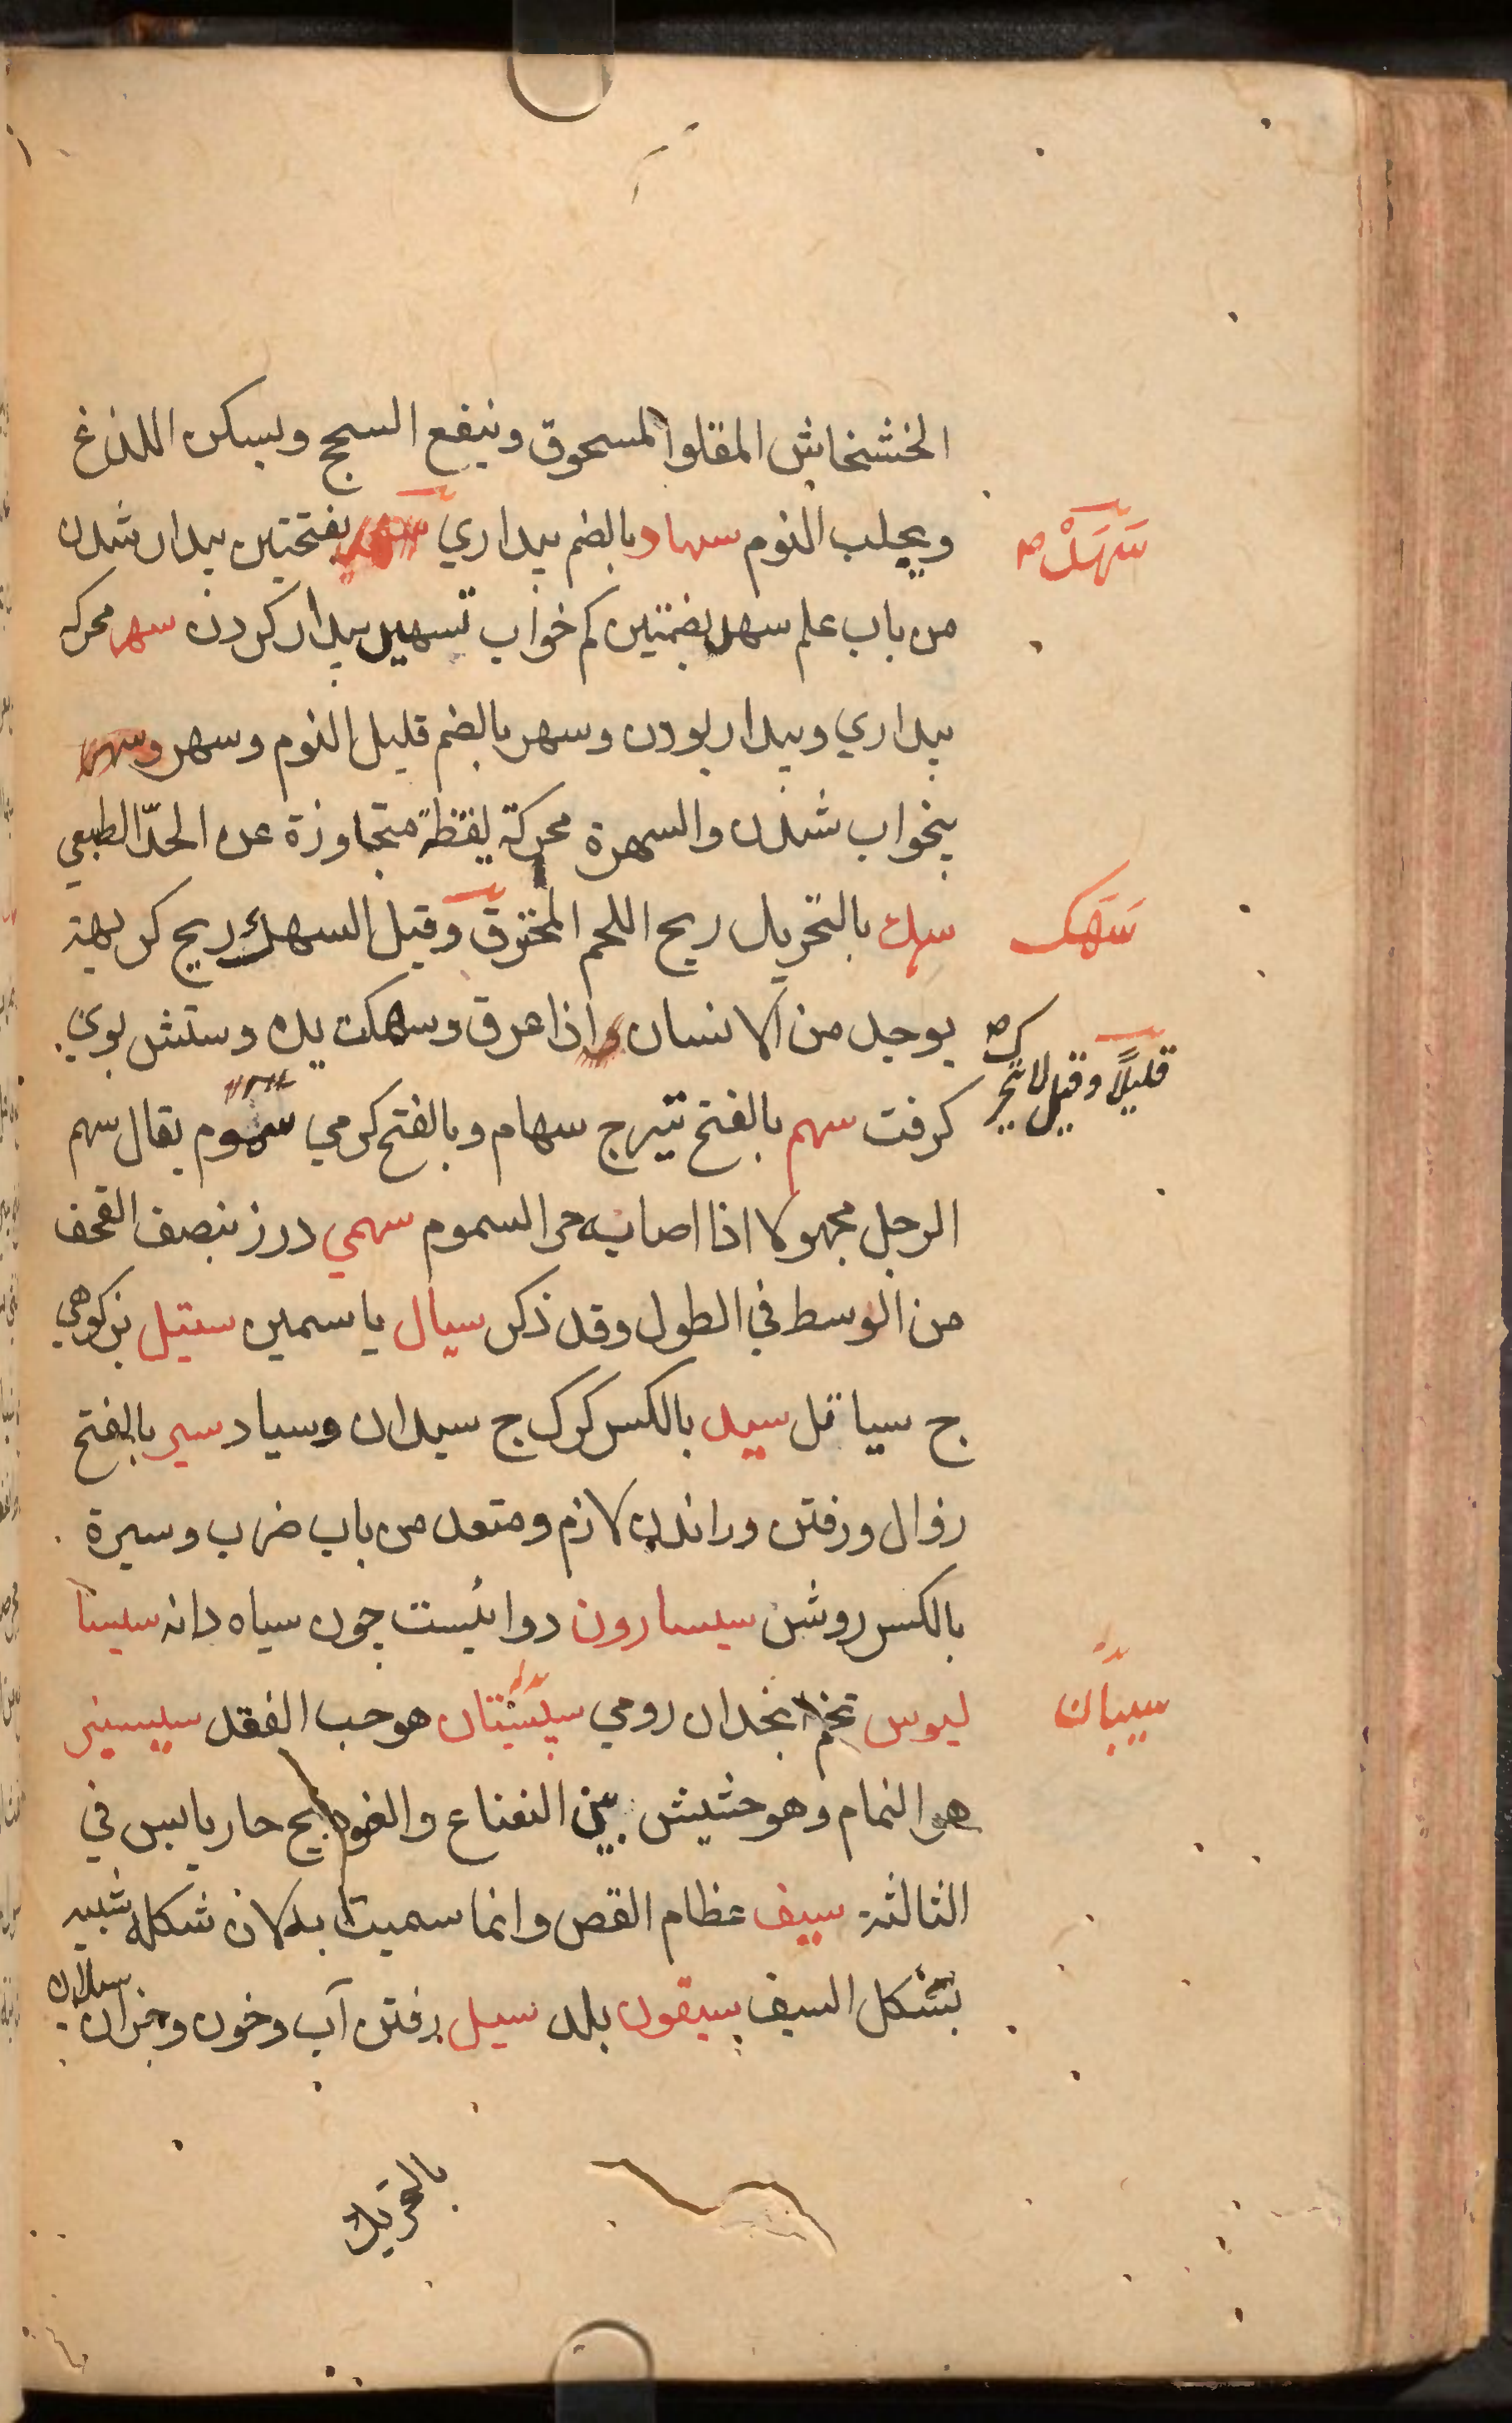 الخشخاش المقلوا المسحوق وينفع السحج ويسكن اللذع
ويجلب النوم سهاد بالضم بيداري بفتحتين بيدار شدن
سَهَدْ صح
من باب علم سهد بضمتين كم خواب تسهيد بيدار كردن سهر محركه
بيداري وبيدار بودن وسهر بالضم قليل النوم وسهر وسهر
بيخواب شدن والسهرة محركة يقظة متجاوزة عن الحدّ الطبعي
سَهَك
سهك بالتحريك ريح اللحم المحترق وقيل السهك ريح كريهة
يوجد من الانسان اذا عرق وسهكت يده وستش بوي
قليلًا وقيل
كرفت سهم بالفتح تير ج سهام وبالفتح كرمي سموم يقال سهم
الرجل مجهولا اذا اصابه حر السموم سهمي درز بنصف القحف
من الوسط في الطول وقد ذكر سيال ياسمين سيتل بز كوهي
ج سياتل سيد بالكسر كرك ج سيدان وسياد سير بالفتح
روال ورفتن وراندن لازم ومتعد من باب ضرب وسيرة
بالكسر روش سيسارون دوائيست چون سياه دانه سيسا
ليوس تخم انجدان رومي سيسبان هو حب الفقد سيسنبر
سيبّان
هو النمام وهو حشيش بين النعناع والفودنج حار يابس في
الثالثة سيف عظام القص وانما سميت به لان شكله شبيه
بشكل السيف سيقون بلد سيل رفتن آب وخون وجزان سيلان
بالتحريك